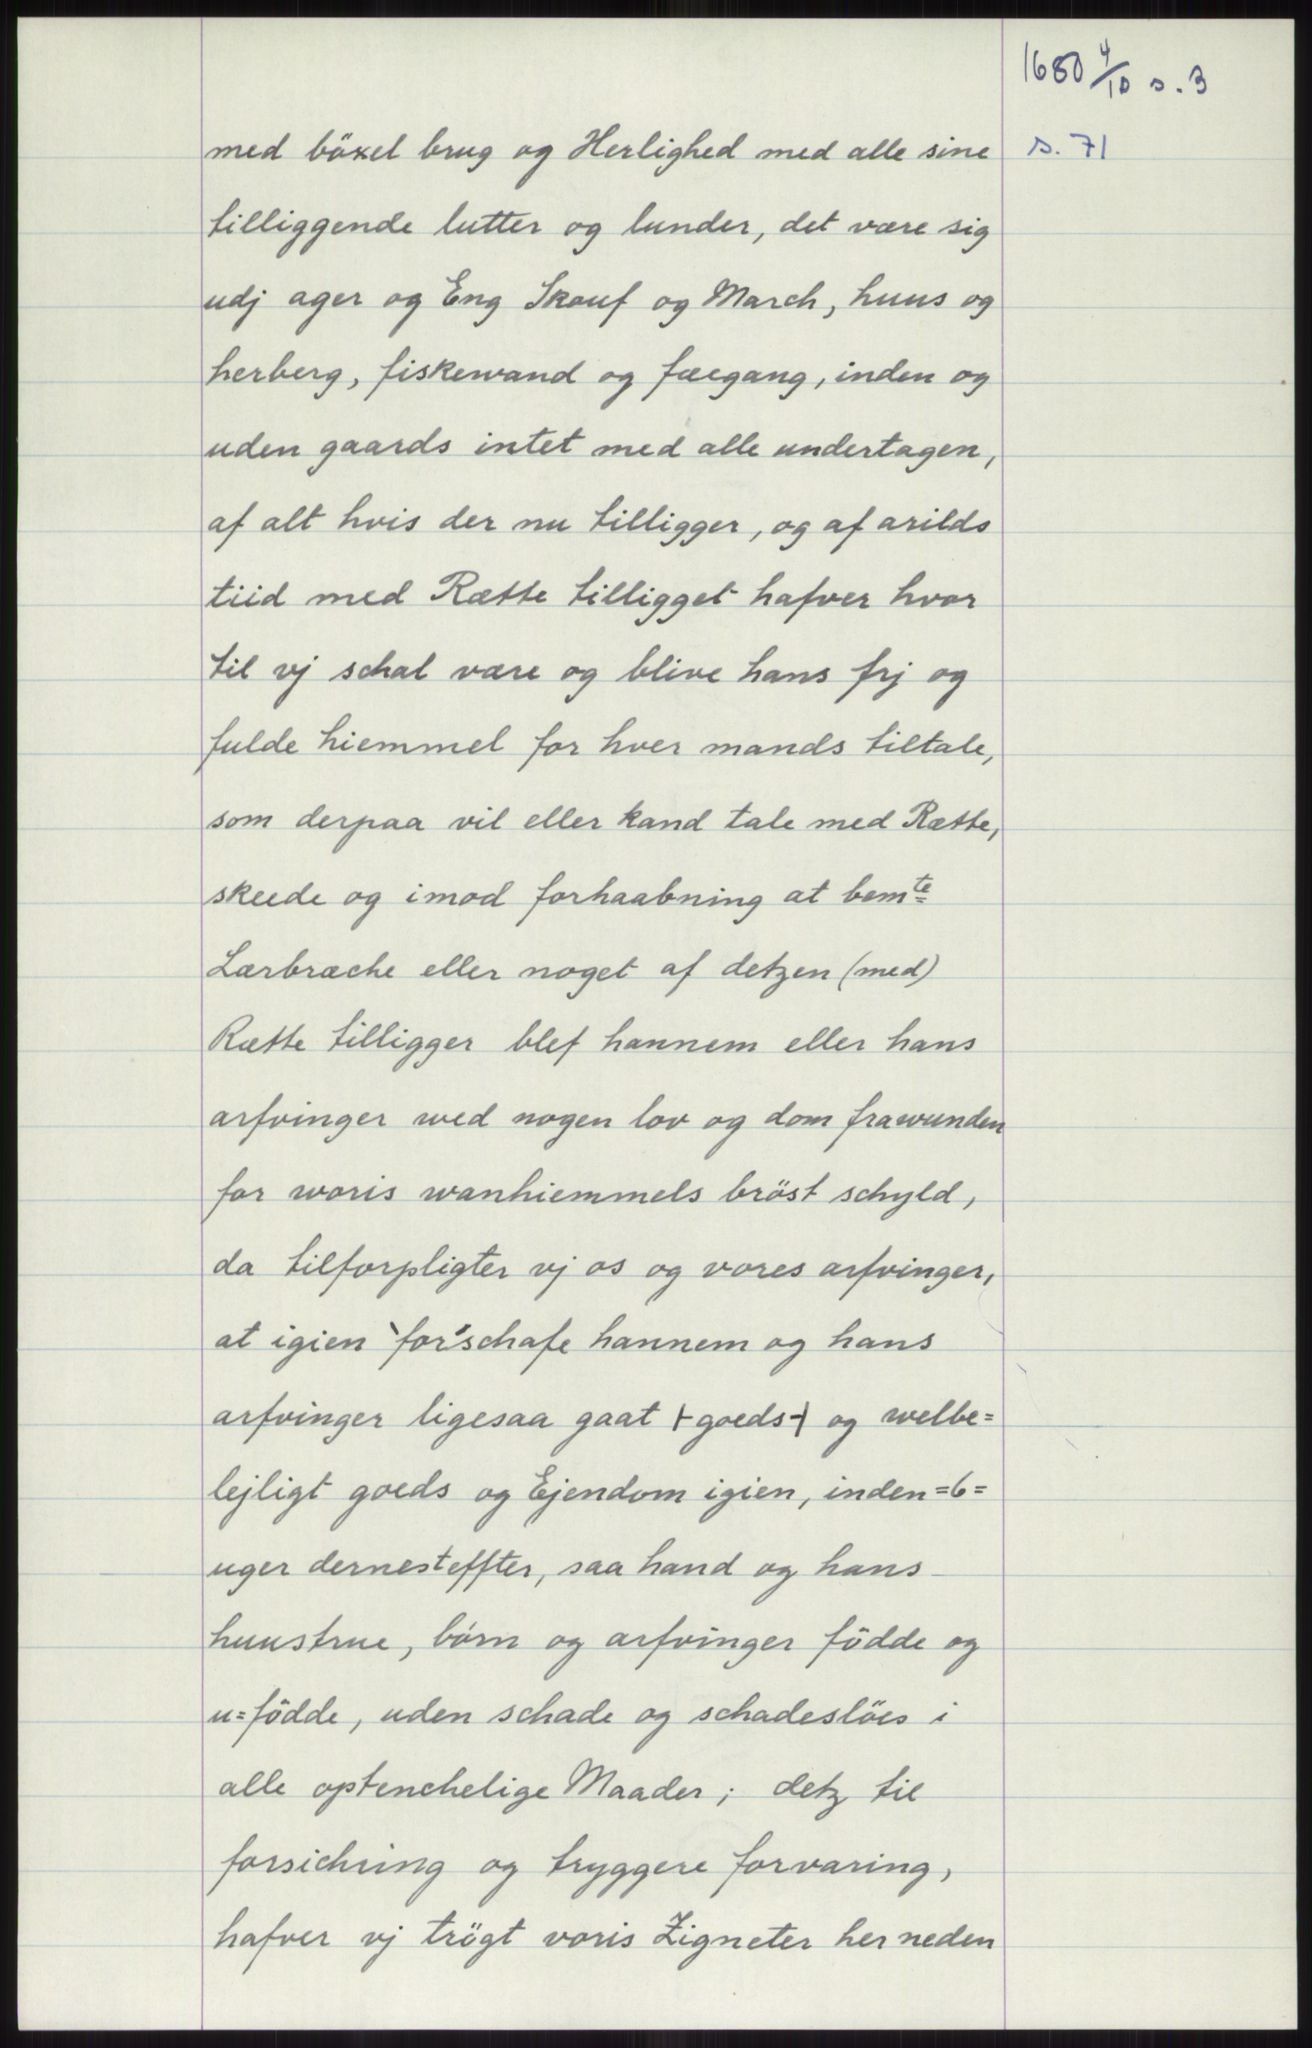 1680 4/10 s. 3
s. 71
med böxel brug og Herlighed med alle sine
tilliggende lutter og lunder, det være sig
udj ager og Eng Skouf og March, huus og
herberg, fiskewand og fæegang, inden og
uden gaards intet med alle undertagen,
af alt hvis der nu tilligger, og af arilds
tiid med Rætte tilligget hafver hvor
til vj schal være og blive hans frj og
fulde hiemmel for hver mands tiltale,
som derpaa vil eller kand tale med Rætte,
skeede og imod forhaabning at bemte
Lærbræche eller noget af detzen (med)
Rætte tilligger blef hannem eller hans
arfvinger wed nogen lov og dom frawunden
for woris wanhiemmels bröst schyld,
da tilforpligter vj os og vores arfvinger,
at igien `for´schafe hannem og hans
arfvinger ligesaa gaat |-goeds-| og welbe=
lejligt goeds og Ejendom igien, inden =6=
uger dernest effter, saa hand og hans
huustrue, börn og arfvinger födde og
u=födde, uden schade og schadeslöes i
alle optenchelige Maader; detz til
forsichring og tryggere forvaring,
hafver vj trögt voris Zigneter her neden